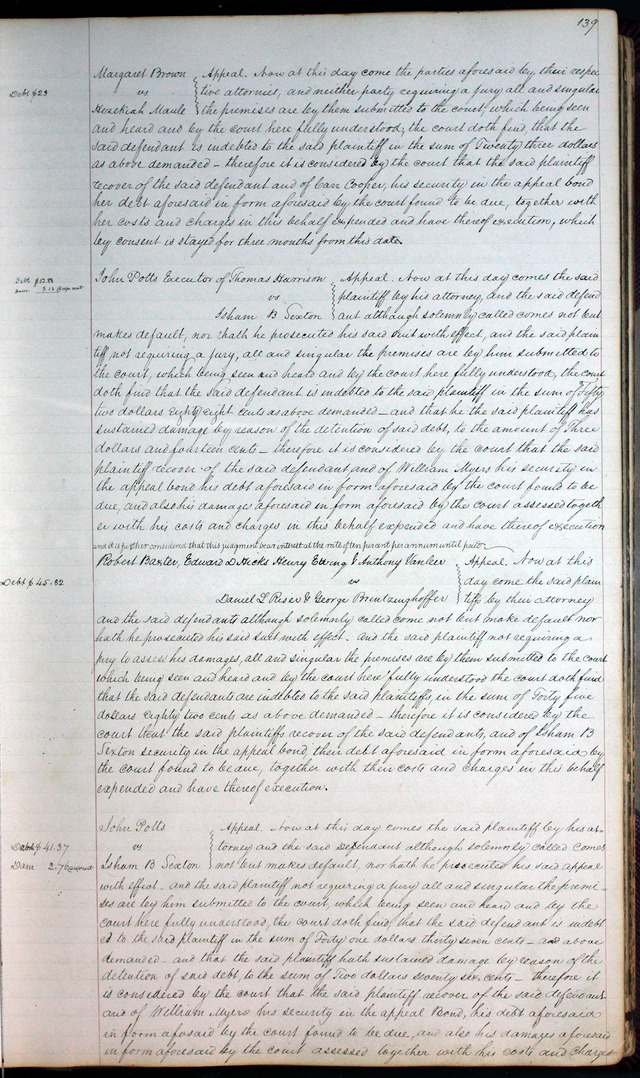 139
Debt $23
Margaret Brown } Appeal. Now at this day come the parties aforesaid by their respec-
vs } tive attornies, and neither party requiring a jury all and singular
Hezekiah Maule } the premises are by them submitted to the court, which being seen
and heard and by the court here fully understood, the court doth find, that the
said defendant is indebted to the said plaintiff in the sum of Twenty three dollars
as above demanded – therefore it is considered by the court that the said plaintiff
recover of the said defendant and of Carr Cooper, his security in the appeal bond
her debt aforesaid in form aforesaid by the court found to be due, together with
her costs and charges in this behalf expended and have thereof execution, which
by consent is stayed for three months from this date.
Debt $52.88
3.14
John Potts Executor of Thomas Harrison } Appeal. Now at this day comes the said
vs } plaintiff by his attorney, and the said defend
Isham B Sexton } ant although solemnly called comes not but
makes default, nor hath he prosecuted his said suit with effect, and the said plain
tiff not requiring a jury, all and singular the premises are by him submitted to
the court, which being seen and heard and by the court here fully understood, the court
doth find that the said defendant is indebted to the said plaintiff in the sum of Fifty
two dollars eighty eight cents as above demanded – and that he the said plaintiff has
sustained damage by reason of the detention of said debt, to the amount of Three
dollars and fourteen cents – therefore it is considered by the court that the said
plaintiff recover of the said defendant and of William Myers his security in
the appeal bond his debt aforesaid in form aforesaid by the court found to be
due, and also his damages aforesaid in form aforesaid by the court assessed togeth
er with his costs and charges in this behalf expended and have thereof execution
and it is further considered that this judgment bear interest at the rate of ten per cent per annum until paid
Debt $45.82
Robert Baxter, Edward D Hicks Henry Ewing & Anthony Vanleer } Appeal. Now at this
vs } day come the said plain
Daniel L Riser & George Brintzinghoffer } tiffs by their attorney
and the said defendants although solemnly called come not but make default nor
hath he prosecuted his said suit with effect. And the said plaintiff not requiring a
jury to assess his damages, all and singular the premises are by them submitted to the court
which being seen and heard and by the court here fully understood the court doth find
that the said defendants are indebted to the said plaintiffs, in the sum of Forty five
dollars eighty two cents as above demanded – therefore it is considered by the
court that the said plaintiffs recover of the said defendants, and of Isham B
Sexton security in the appeal bond, their debt aforesaid in form aforesaid by
the court found to be due, together with their costs and charges in this behalf
expended and have thereof execution.
Debt $41.37
Dam 2.76
John Potts } Appeal. Now at this day comes the said plaintiff by his at-
vs } torney and the said Defendant although solemnly called comes
Isham B Sexton } not but makes default, nor hath he prosecuted his said appeal
with effect – and the said plaintiff not requiring a jury all and singular the premi-
ses are by him submitted to the court, which being seen and heard and by the
court here fully understood, the court doth find, that the said defendant is indebt
ed to the said plaintiff in the sum of Forty one dollars thirty seven cents – as above
demanded – and that the said plaintiff hath sustained damage by reason of the
detention of said debt, to the sum of Two dollars seventy six cents – therefore it
is considered by the court that the said plaintiff recover of the said defendant
and of William Myers his security in the appeal Bond, his debt aforesaid
in form afosaid by the court found to be due, and also his damages aforesaid
in form aforesaid by the court assessed together with his costs and charges